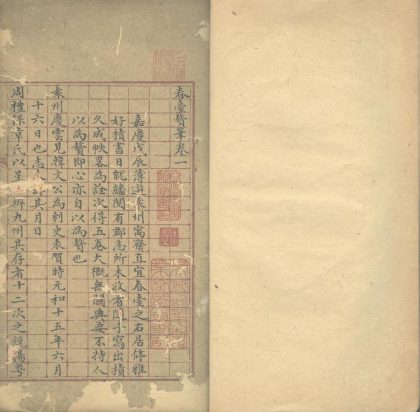 春臺贅筆卷一
嘉慶戊辰薄遊袁州寓齋直宜春臺之右居停雅
好積書日就繙閱有郡志所未收有隨手寫出積
久成帙畧為詮次得五卷大槪無關典要不特人
以為贅即心亦自以為贅也
袁州慶雲見韓文公為刺史表賀時元和十五年六月
十六日也志未詳其月日
周禮保章氏以星土辨九州其存者十二次之說揚粤